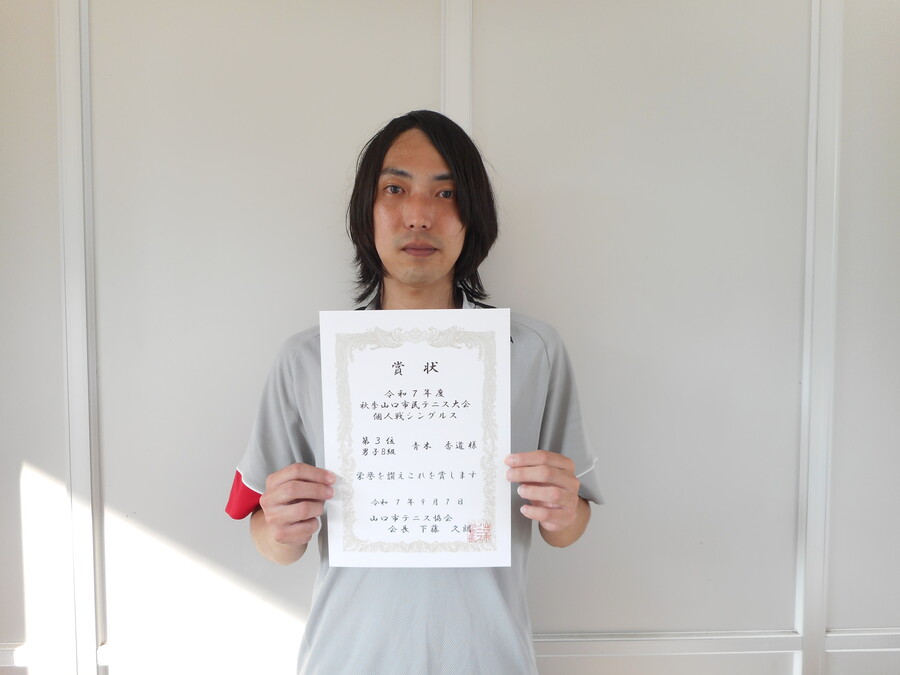 賞状
令和7年度
秋季山口市民テニス大会
個人戦シングルス
第3位
男子B級 青木 香道 様
栄誉を讃えこれを賞します
令和7年9月7日
山口市テニス協会
会長 下藤 文雄